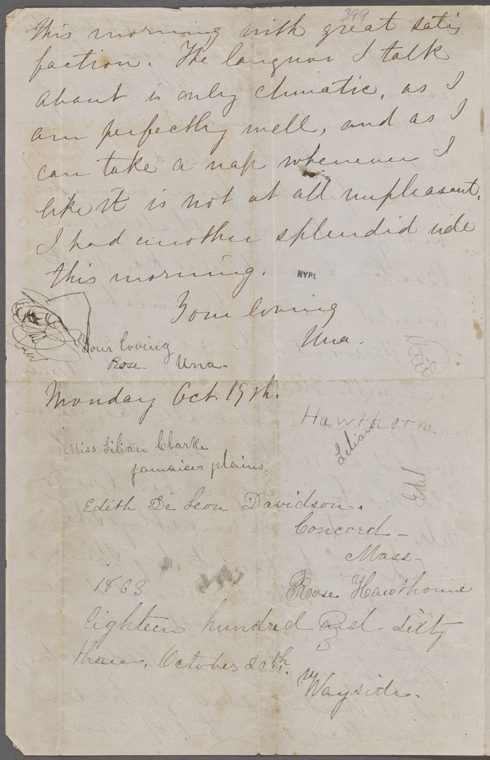 399
this morning with great satis
faction. The languor I talk
about is only climatic, as I
am perfectly well, and as I
can take a nap whenever I
like it is not at all unpleasant.
I had another splendid ride
this morning.
NYPL
Your loving
Una.
Your loving
Rose Una.
Monday Oct. 19th.
Hawthorn
Lilian
Miss Lilian Clarke
Jamaica plains,
Edith De Leon Davidson.
Concord -
Mass -
1863
Rose Hawthorne
Eighteen hundred and sixty
three. October 20th.
Wayside.